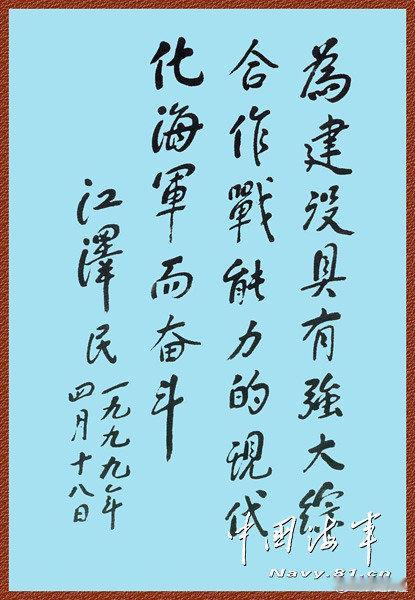 為建设具有強大綜
合作戰能力的現代
化海軍而奋斗
江澤民
一九九九年
四月十八日
中国海军
Navy.81.cn